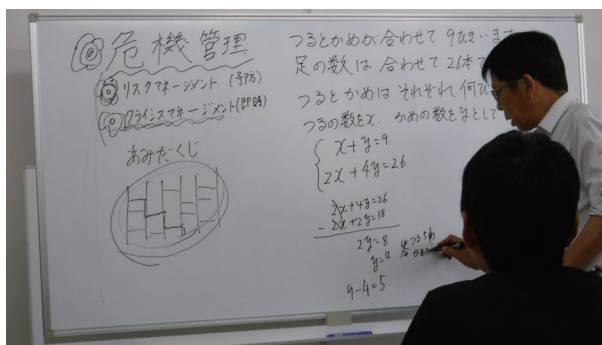 ◎危機管理
◎リスクマネージメント(予防)
◎クライシスマネージメント(即時)
あみだくじ
つるとかめが合わせて9ひきいます
足の数は合わせて26本で
つるとかめはそれぞれ何ひ
つるの数をx. かめの数をyとして
x+y=9
2x+4y=26
2x+4y=26
- 2x+2y=18
2y=8
y=4
9-4=5
答 つる5わ